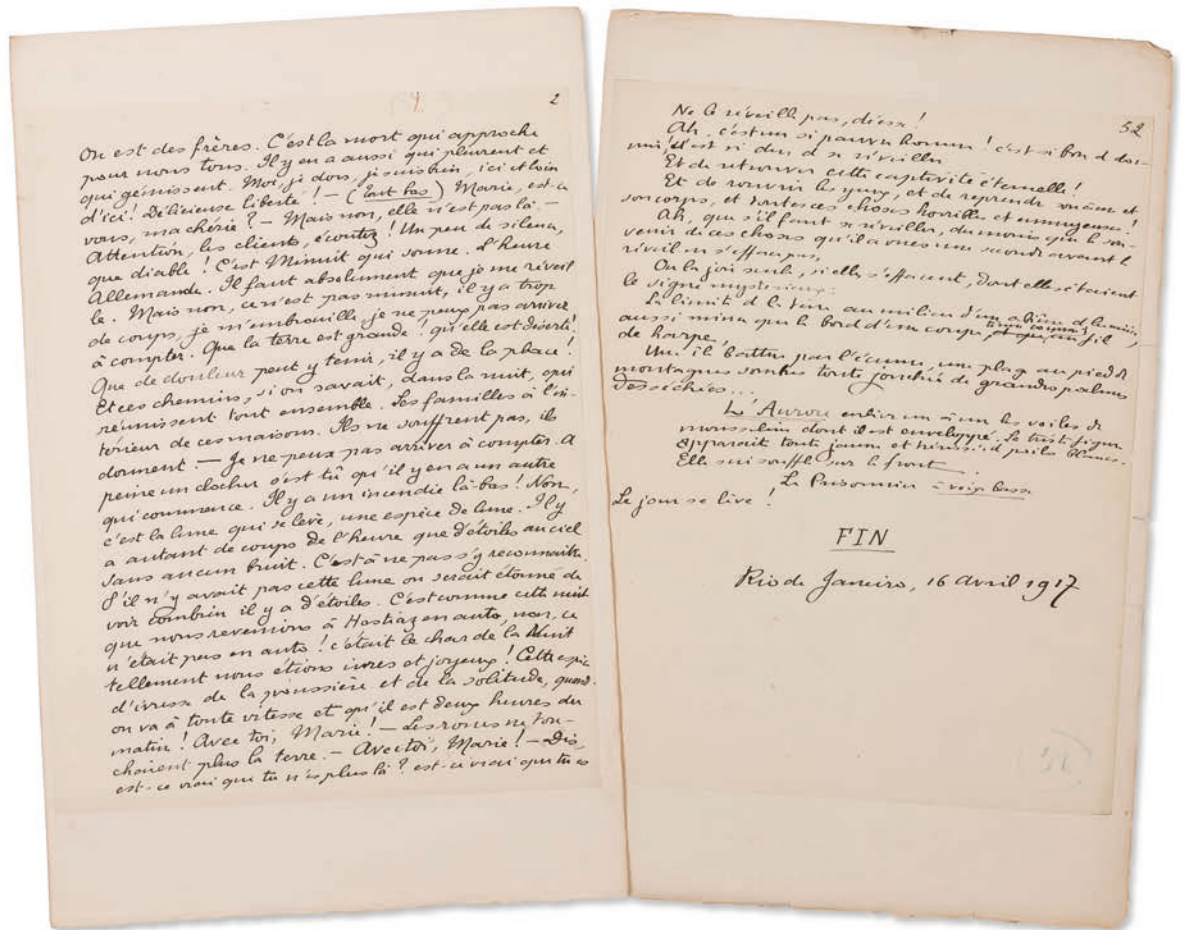 2
On est des frères. C'est la mort qui approche
pour nous tous. Il y en a aussi qui pleurent et
qui gémissent. Moi, je dors, je suis bien, ici et loin
d'ici! Délicieuse liberté! – (tout bas) Marie, est-ce
vous, ma chérie? – Mais non, elle n'est pas là –
Attention, les clients, écoutez! Un peu de silence,
que diable! C'est Minuit qui sonne. L'heure
Allemande. Il faut absolument que je me réveil
le. Mais non, ce n'est pas minuit, il y a trop
de coups, je m'embrouille, je ne peux pas arriver
à compter. Que la terre est grande! qu'elle est déserte!
Que de douleur peut y tenir, il y a de la place!
Et ces chemins, si on savait, dans la nuit, qui
réunissent tout ensemble. Les familles à l'in-
térieur de ces maisons. Ils ne souffrent pas, ils
dorment. – Je ne peux pas arriver à compter. A
peine un clocher s'est tû qu'il y en a un autre
qui commence. Il y a un incendie là-bas! Non,
c'est la lune qui se lève, une espèce de lune. Il y
a autant de coups de l'heure que d'étoiles au ciel
sans aucun bruit. C'est à ne pas s'y reconnaître.
S'il n'y avait pas cette lune on serait étonné de
voir combien il y a d'étoiles. C'est comme cette nuit
que nous revenions à Hostiaz en auto, non, ce
n'était pas en auto! c'était le char de la Nuit
tellement nous étions ivres et joyeux! Cette espèce
d'ivresse de la poussière et de la solitude, quand
on va à toute vitesse et qu'il est deux heures du
matin! Avec toi, Marie! – Les roues ne tou-
chaient plus la terre. – Avec toi, Marie! – Dis,
est-ce vrai que tu n'es plus là? est-ce vrai que tu es
52
Ne le réveille pas, déesse!
Ah, c'est un si pauvre homme! c'est si bon de dor-
mir, c'est si dur de se réveiller
Et de retrouver cette captivité éternelle!
Et de rouvrir les yeux, et de reprendre son âme et
son corps, et toutes ces choses horribles et ennuyeuses!
Ah, que s'il faut se réveiller, du moins que le sou-
venir de ces choses qu'il a vues une seconde avant le
réveil ne s'efface pas,
Ou la joie seule, si elles s'effacent, dont elles étaient
le signe mystérieux:
La limite de la Terre au milieu d'un abîme de lumière,
aussi mince que le bord d'une coupe, tenue comme un fil
de harpe,
Une île battue par l'écume, une plage au pied de
montagnes sombres toute jonchée de grandes palmes
desséchées...
L'Aurore enlève un à un les voiles de
mousseline dont il est enveloppé. La triste figure
apparaît toute jaune et hérissée de poils blancs.
Elle lui souffle sur le front.
Le Prisonnier à voix basse
Le jour se lève!
FIN
Rio de Janeiro, 16 avril 1917